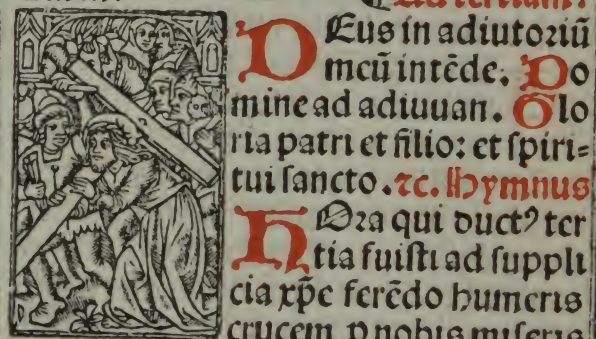 Ad tertiam.
DEus in adiutoriū
meū intēde. Do
mine ad adiuuan. Glo
ria patri et filio: et spiri=
tui sancto. ⁊c. Hymnus
HOra qui duct⁹ ter
tia fuisti ad suppli
cia xp̄e ferēdo humeris
crucem p nobis miseris